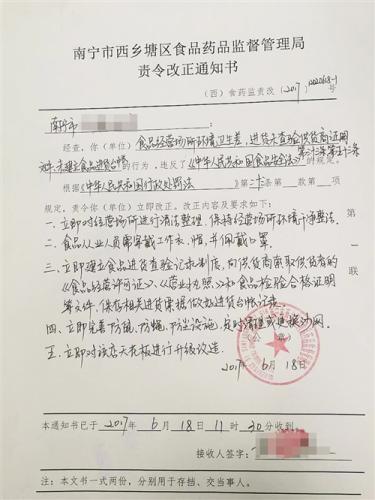 南宁市西乡塘区食品药品监督管理局
责令改正通知书
(西)食药监责改〔2017〕
南宁市
经查,你(单位)食品经营场所环境卫生差,进货未查验供货商证明
文件,未建立食品进货台帐的行为,违反了《中华人民共和国食品安全法》第三十三条第五十三条的规定。
根据《中华人民共和国行政处罚法》第二十三条第 款第 项
规定,责令你(单位)立即改正。改正内容及要求如下:
一、立即对经营场所进行清洁整理,保持经营场所环境干净整洁。
二、食品从业人员需穿戴工作衣、帽,并佩戴口罩。
三、立即建立食品进货查验记录制度,向供货商索取供货商的
《食品经营许可证》、《营业执照》和食品检验合格证明
等文件,保存相关进货票据做好进货台帐记录。
四、立即完善防鼠、防蝇、防尘设施,及时清理或更换纱网。
五、立即对该店天花板进行升级改造。
(公章)
2017年6月18日
第一联
本通知书已于2017年6月18日11时30分收到。
接收人签字:
注:本文书一式两份,分别用于存档、交当事人。